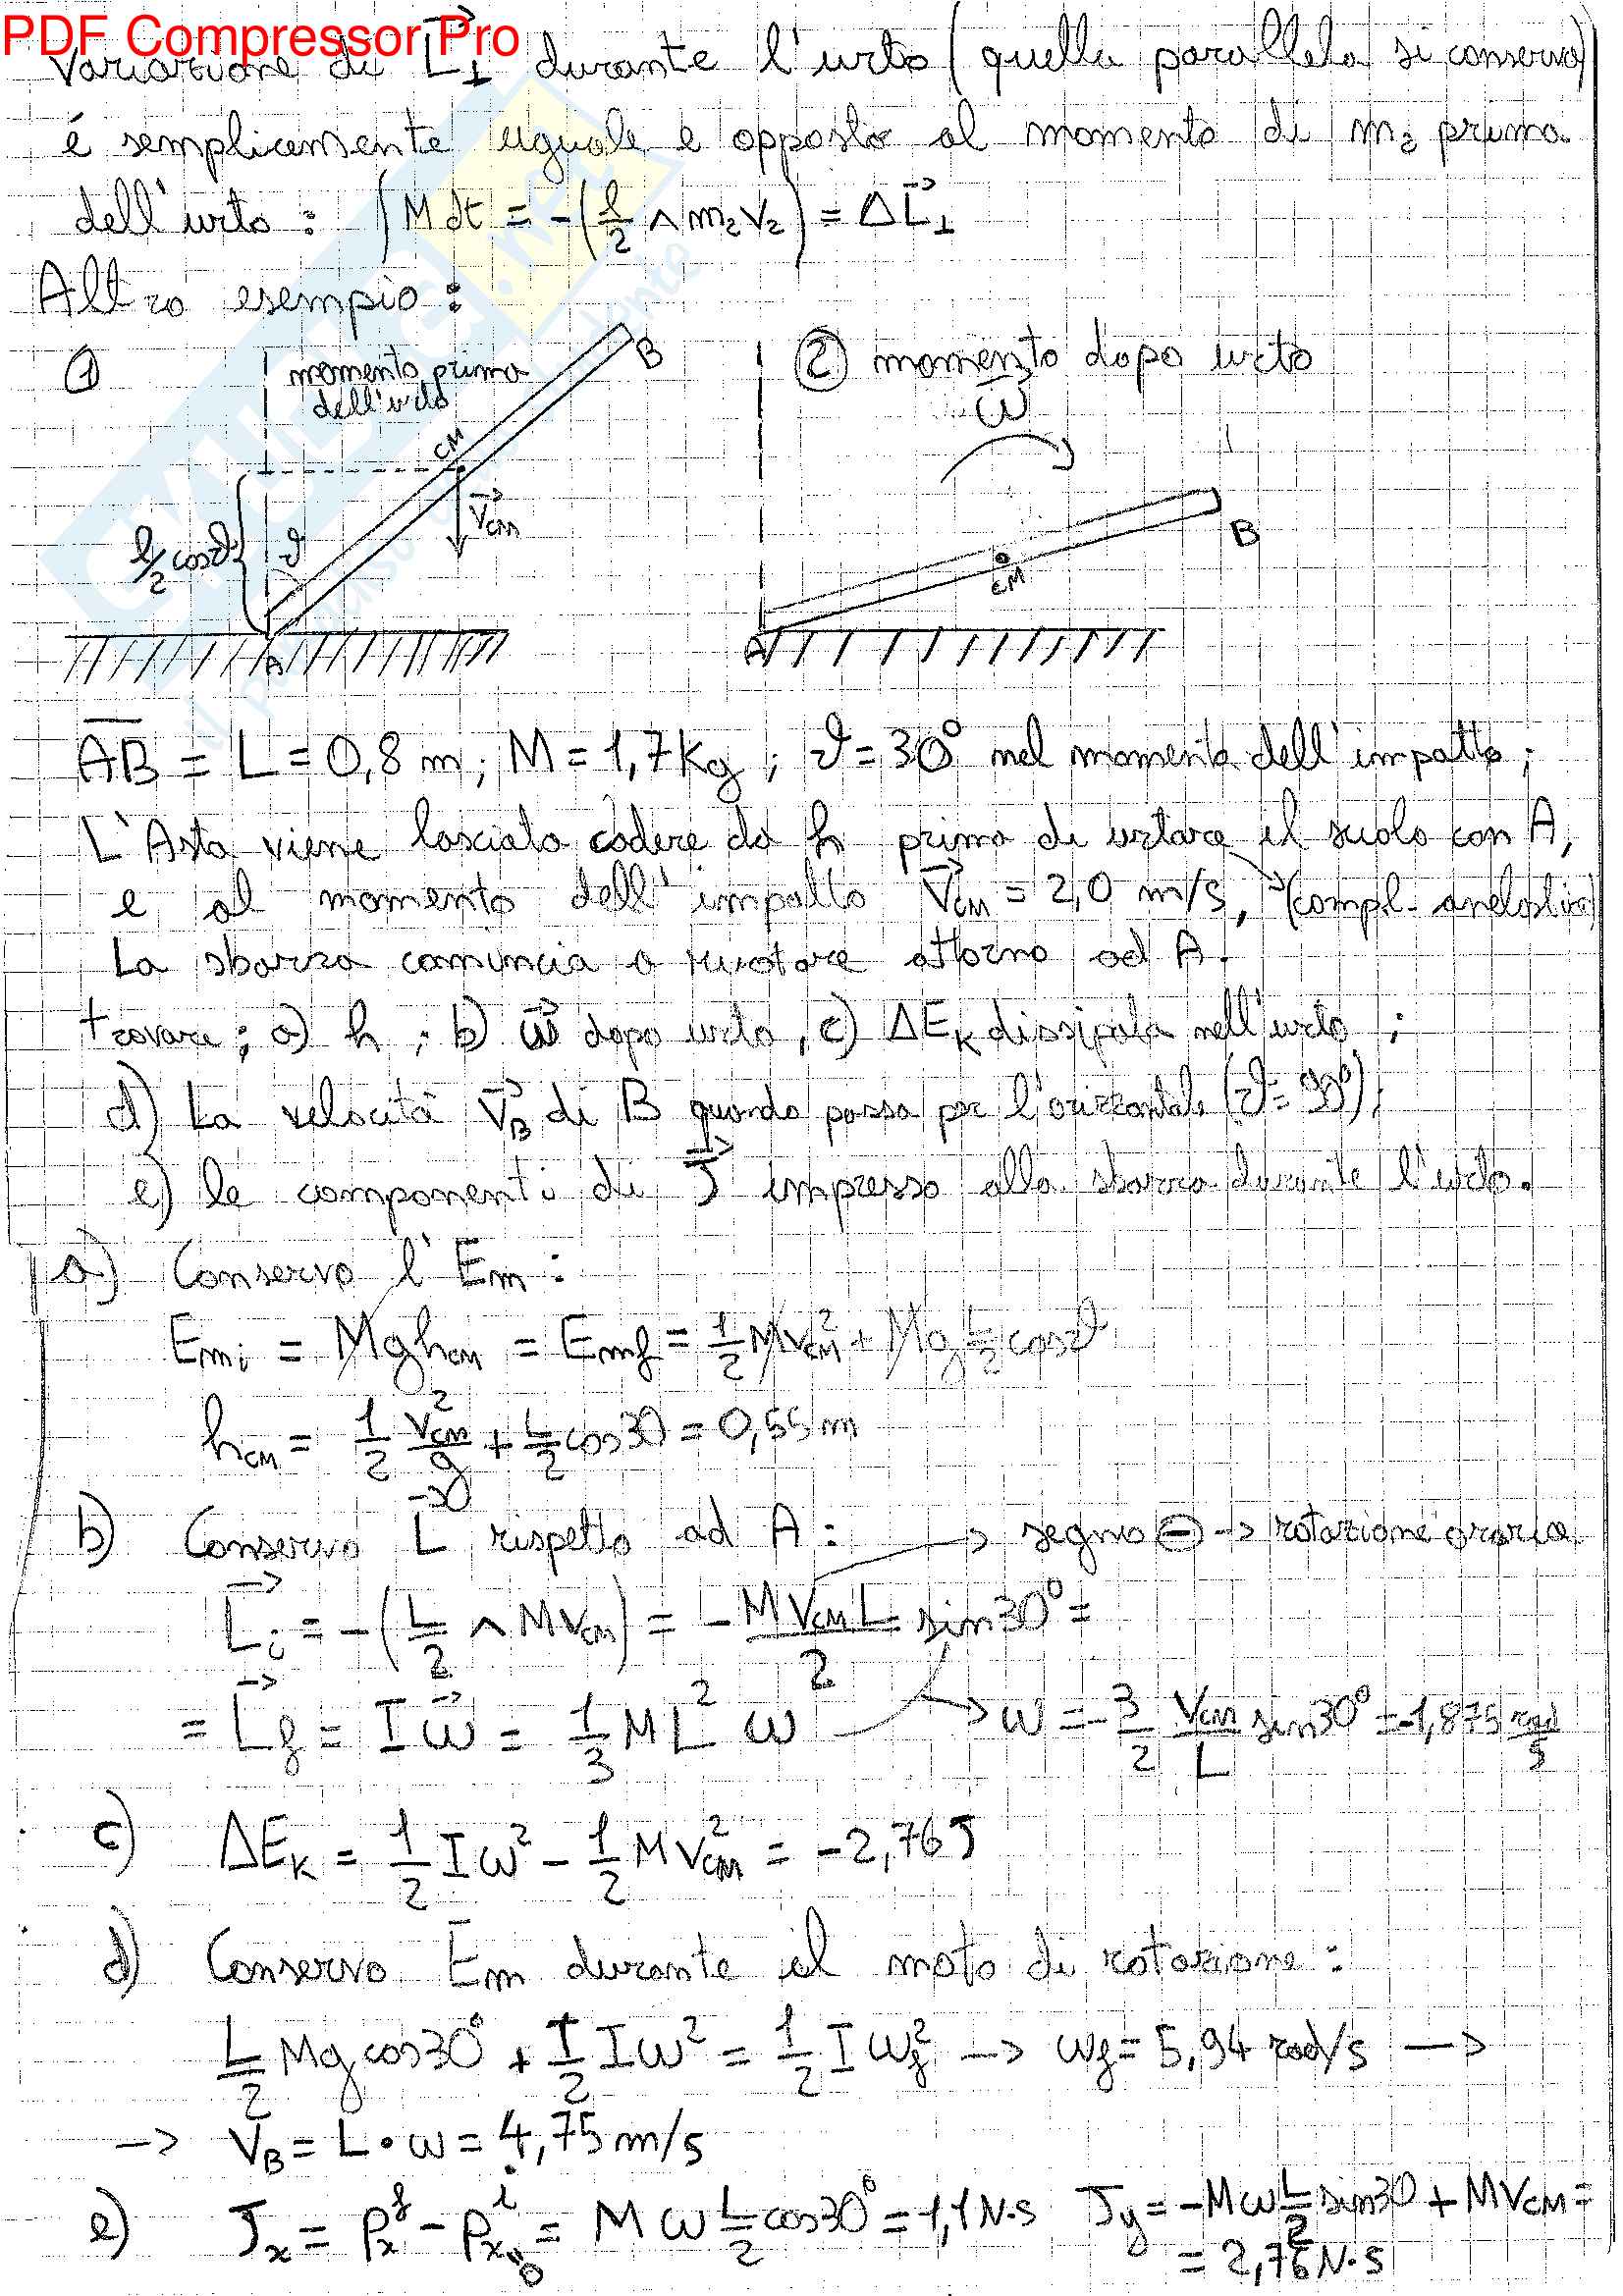 PDF Compressor Pro
Variazione di L⃗⊥ durante l'urto (quella parallela si conserva)
é semplicemente uguale e opposta al momento di m₂ prima
dell'urto: ∫M dt = -(l/2 ∧ m₂v₂) = ΔL⃗⊥
Altro esempio:
① momento prima
dell'urto
② momento dopo urto
ω⃗
B
CM
V⃗cm
l/2 cosϑ
ϑ
A
B
CM
A
AB = L = 0,8 m; M = 1,7 Kg; ϑ = 30° nel momento dell'impatto;
L'Asta viene lasciata cadere da h prima di urtare il suolo con A,
e al momento dell'impatto V⃗cm = 2,0 m/s, →(compl. anelastico)
La sbarra comincia a ruotare attorno ad A.
trovare: a) h; b) ω⃗ dopo urto, c) ΔEk dissipata nell'urto;
d) La velocità V⃗B di B quando passa per l'orizzontale (ϑ = 90°);
e) le componenti di J⃗ impresso alla sbarra durante l'urto.
a) Conservo l'Em:
Emi = Mghcm = Emf = 1/2 Mvcm² + Mg L/2 cosϑ
hcm = 1/2 vcm²/g + L/2 cos30 = 0,55 m
b) Conservo L⃗ rispetto ad A: → segno ⊖ → rotazione oraria
L⃗i = -(L/2 ∧ MVcm) = - MVcmL/2 sin30° =
= L⃗f = Iω⃗ = 1/3 ML² ω → ω = -3/2 Vcm/L sin30° = -1,875 rad/s
c) ΔEk = 1/2 Iω² - 1/2 MVcm² = -2,76 J
d) Conservo Em durante il moto di rotazione:
L/2 Mg cos30° + 1/2 Iω² = 1/2 Iωf² → ωf = 5,94 rad/s →
→ VB = L · ω = 4,75 m/s
e) Jx = pxf - pxi = Mω L/2 cos30° = 1,1 N·s Jy = -Mω L/2 sin30 + MVcm =
0
= 2,76 N·s